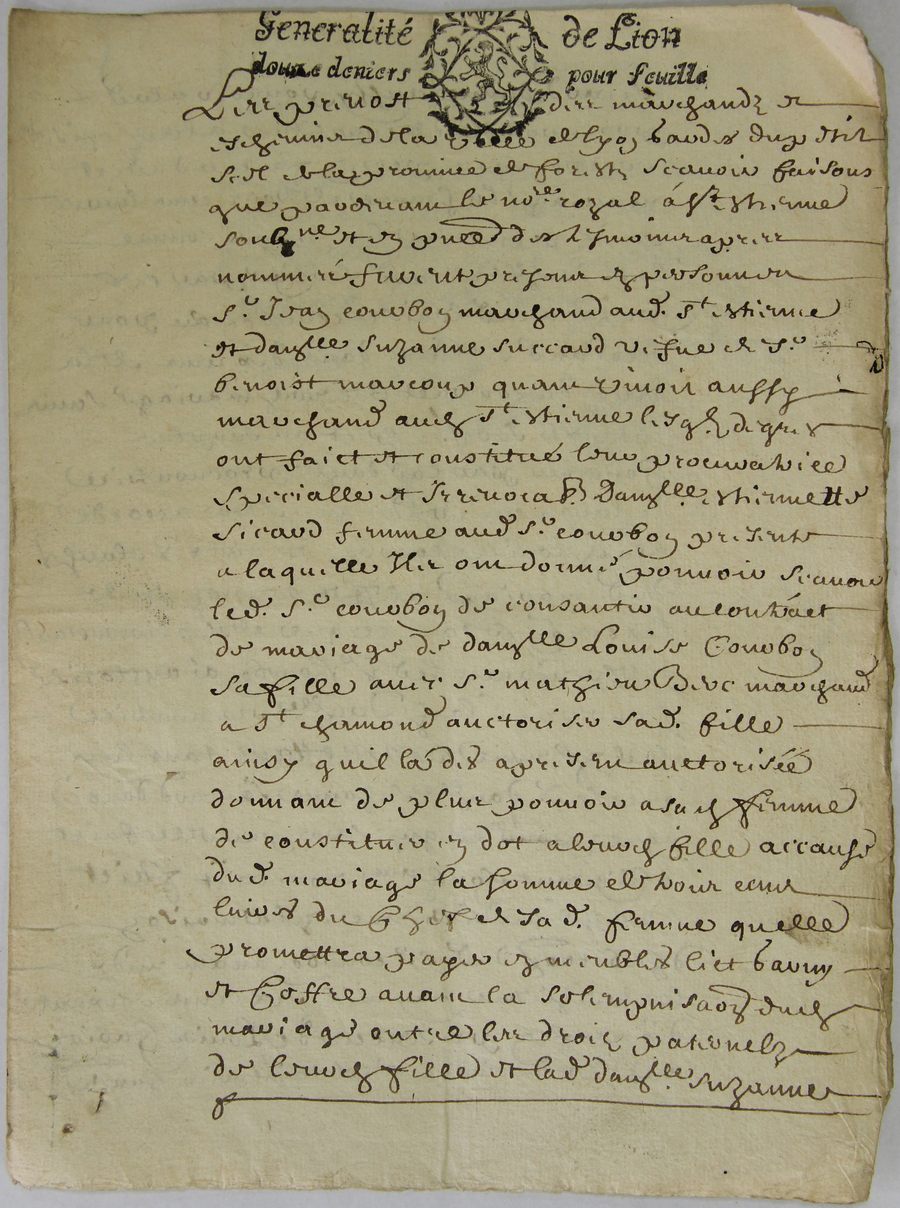 Generalité de Lion
douze deniers pour feuille
Les prevost des marchandz et
eschevins de la ville de lyon gardes du petit
seel de la province de forestz scavoir faisons
que pardevant le nore royal á st estienne
soubne et en pnce des tesmoins apres
nommeés furent presens en personnes
sr. Jean courbon marchand aud. st estienne
et damlle suzanne siccard vefve de sr.
benoist marcoux quand vivoit aussy
marchand aud st estienne lesqls de gres
ont faict et constitué leur procuratrice
specialle et Irrevocable Damlle estiennette
sicard femme aud sr courbon presente
a laquelle Ils ont donné pouvoir scavoir
led. sr courbon de consantir au contract
de mariage de damlle Louise Courbon
sa fille avec sr. mathieu marchand
a st chamond auctoriser sad. fille
ainsy quil la des apresent auctorisée
donnant de plus pouvoir a sad femme
de constituer en dot a leurd fille accause
dud. mariage la somme de trois cens
livres du chef de sad. femme quelle
promettra payer en meubles lict garny
et coffre avant la solempnisaon dud
mariage outre les droitz paternelz
de leurd fille et lad damlle suzanne